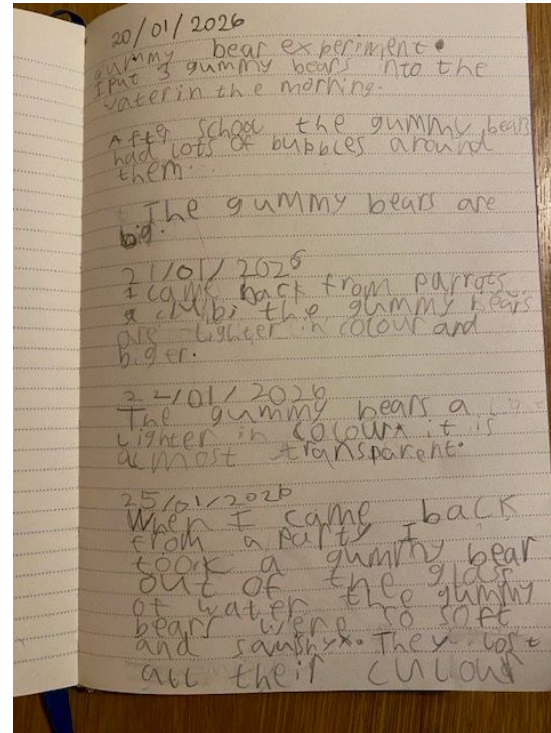 20/01/2026
gummy bear experiment.
I put 3 gummy bears nto the
water in the morning.
After school the gummy bears
had lots of bubbles around
them.
The gummy bears are
big.
21/01/2026
I came back from parrots
club: the gummy bears
are lighter in colour and
biger.
22/01/2026
The gummy bears a
lighter in colour it is
almost transparent.
25/01/2026
When I came back
from a party I
took a gummy bear
out of the glass
of water the gummy
bears were so soft
and squshy. They lost
all their culour